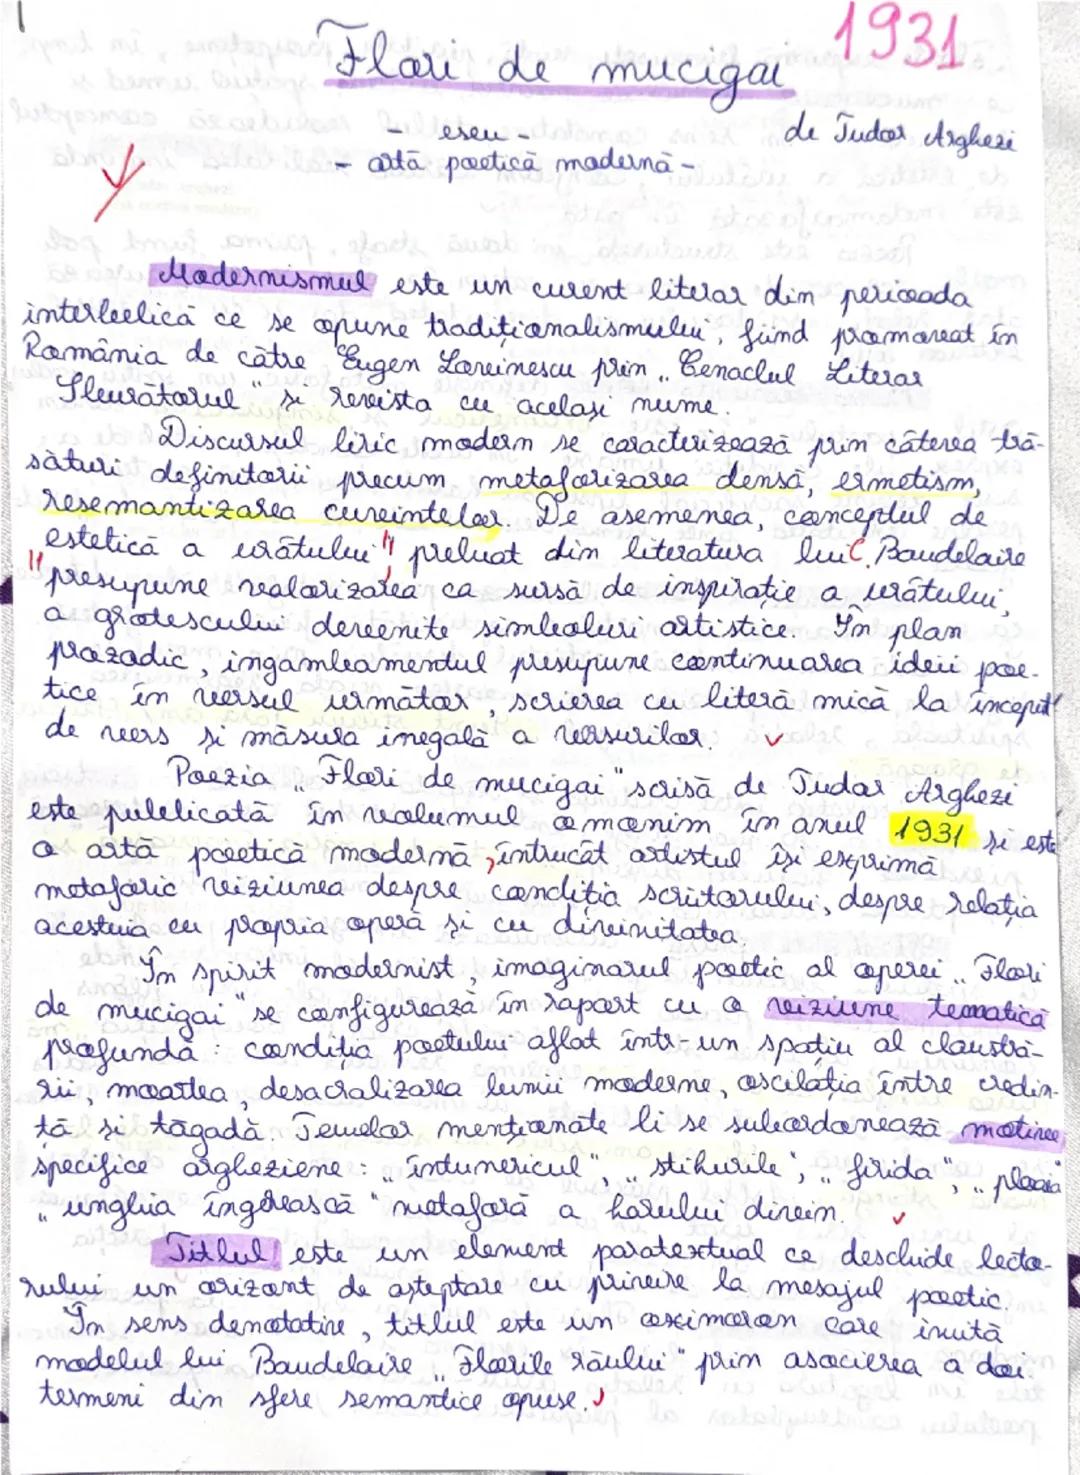 1931
Flori de mucigai
- eseu -
de Tudor Arghezi
- artă poetică modernă -
Modernismul este un curent literar din perioada
interbelică ce se opune tradiționalismului, fiind promovat în
România de către Eugen Lovinescu prin „Cenaclul Literar
Sburătorul" și revista cu același nume.
Discursul liric modern se caracterizează prin câteva tră-
sături definitorii precum metaforizarea densă, ermetism,
resemantizarea cuvintelor. De asemenea, conceptul de
"estetică a urâtului" preluat din literatura lui C. Baudelaire
presupune valorizarea ca sursă de inspirație a urâtului,
a grotescului devenite simboluri artistice. În plan
prozodic, ingambamentul presupune continuarea ideii poe-
tice în versul următor, scrierea cu literă mică la început
de vers și măsura inegală a versurilor.
Poezia „Flori de mucigai" scrisă de Tudor Arghezi
este publicată în volumul omonim în anul 1931 și este
o artă poetică modernă, întrucât artistul își exprimă
metaforic viziunea despre condiția scriitorului, despre relația
acestuia cu propria operă și cu divinitatea.
În spirit modernist, imaginarul poetic al operei „Flori
de mucigai" se configurează în raport cu o viziune tematică
profundă: condiția poetului aflat într-un spațiu al claustră-
rii, moartea, desacralizarea lumii moderne, oscilația între credin-
ță și tăgadă. Temelor menționate li se subordonează motive
specifice argheziene: „întunericul", „stihurile", „firida", „ploaia"
„unghia îngerească" metaforă a harului divin.
Titlul este un element paratextual ce deschide lecto-
rului un orizont de așteptare cu privire la mesajul poetic.
În sens denotativ, titlul este un oximoron care invită
modelul lui Baudelaire „Florile răului" prin asocierea a doi
termeni din sfere semantice opuse.